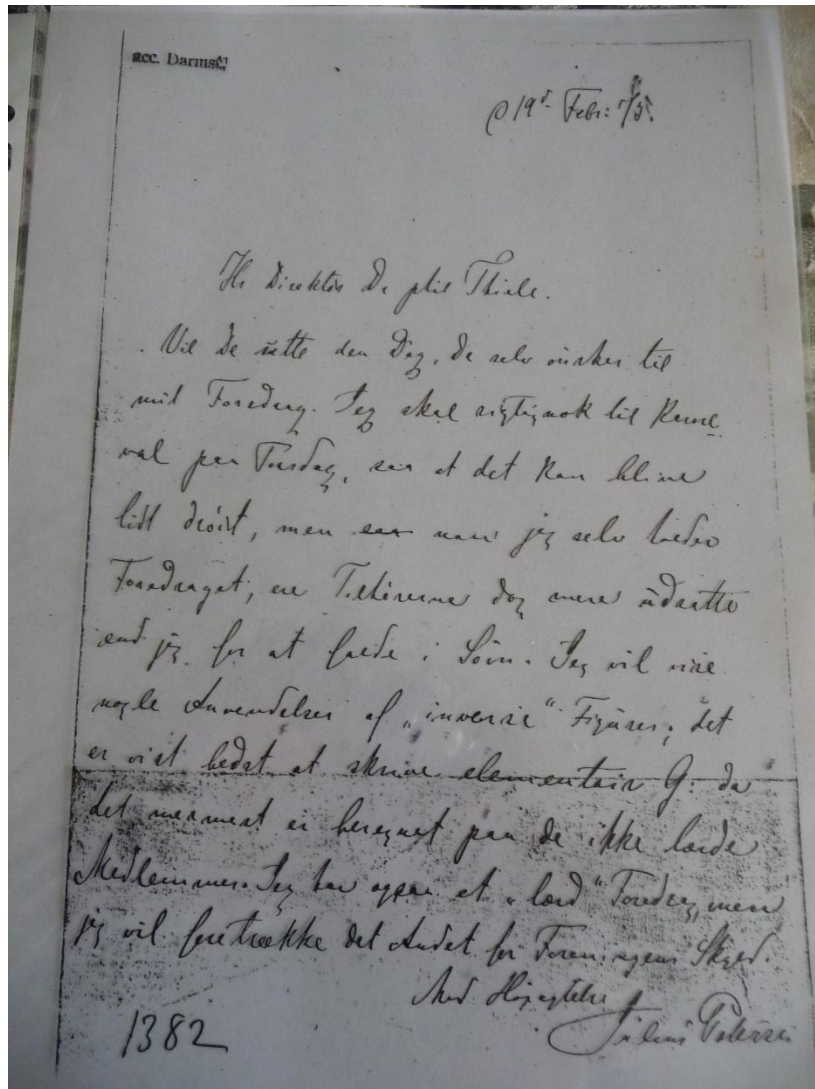 acc. Darmst.
d 19d Febr: 75.
Hr Direktör Dr phil Thiele.
Vil De sætte den Dag, De selv önsker til
mit Foredrag. Jeg skal rigtignok til Karne
val paa Tirsdag, saa at det kan blive
lidt dröit, men saa naar jeg selv holder
Foredraget, ere Tilhörerne dog mere udsatte
end jeg for at falde i Sövn. Jeg vil vise
nogle Anvendelser af „inverse“ Figurer; det
er vist bedst at skrive elementair G: da
det nærmest er beregnet paa de ikke lærde
Medlemmer. Jeg har ogsaa et „lærd“ Foredrag, men
jeg vil foretrække det Andet for Foreningens Skyld.
Med Höjagtelse
Julius Petersen
1382